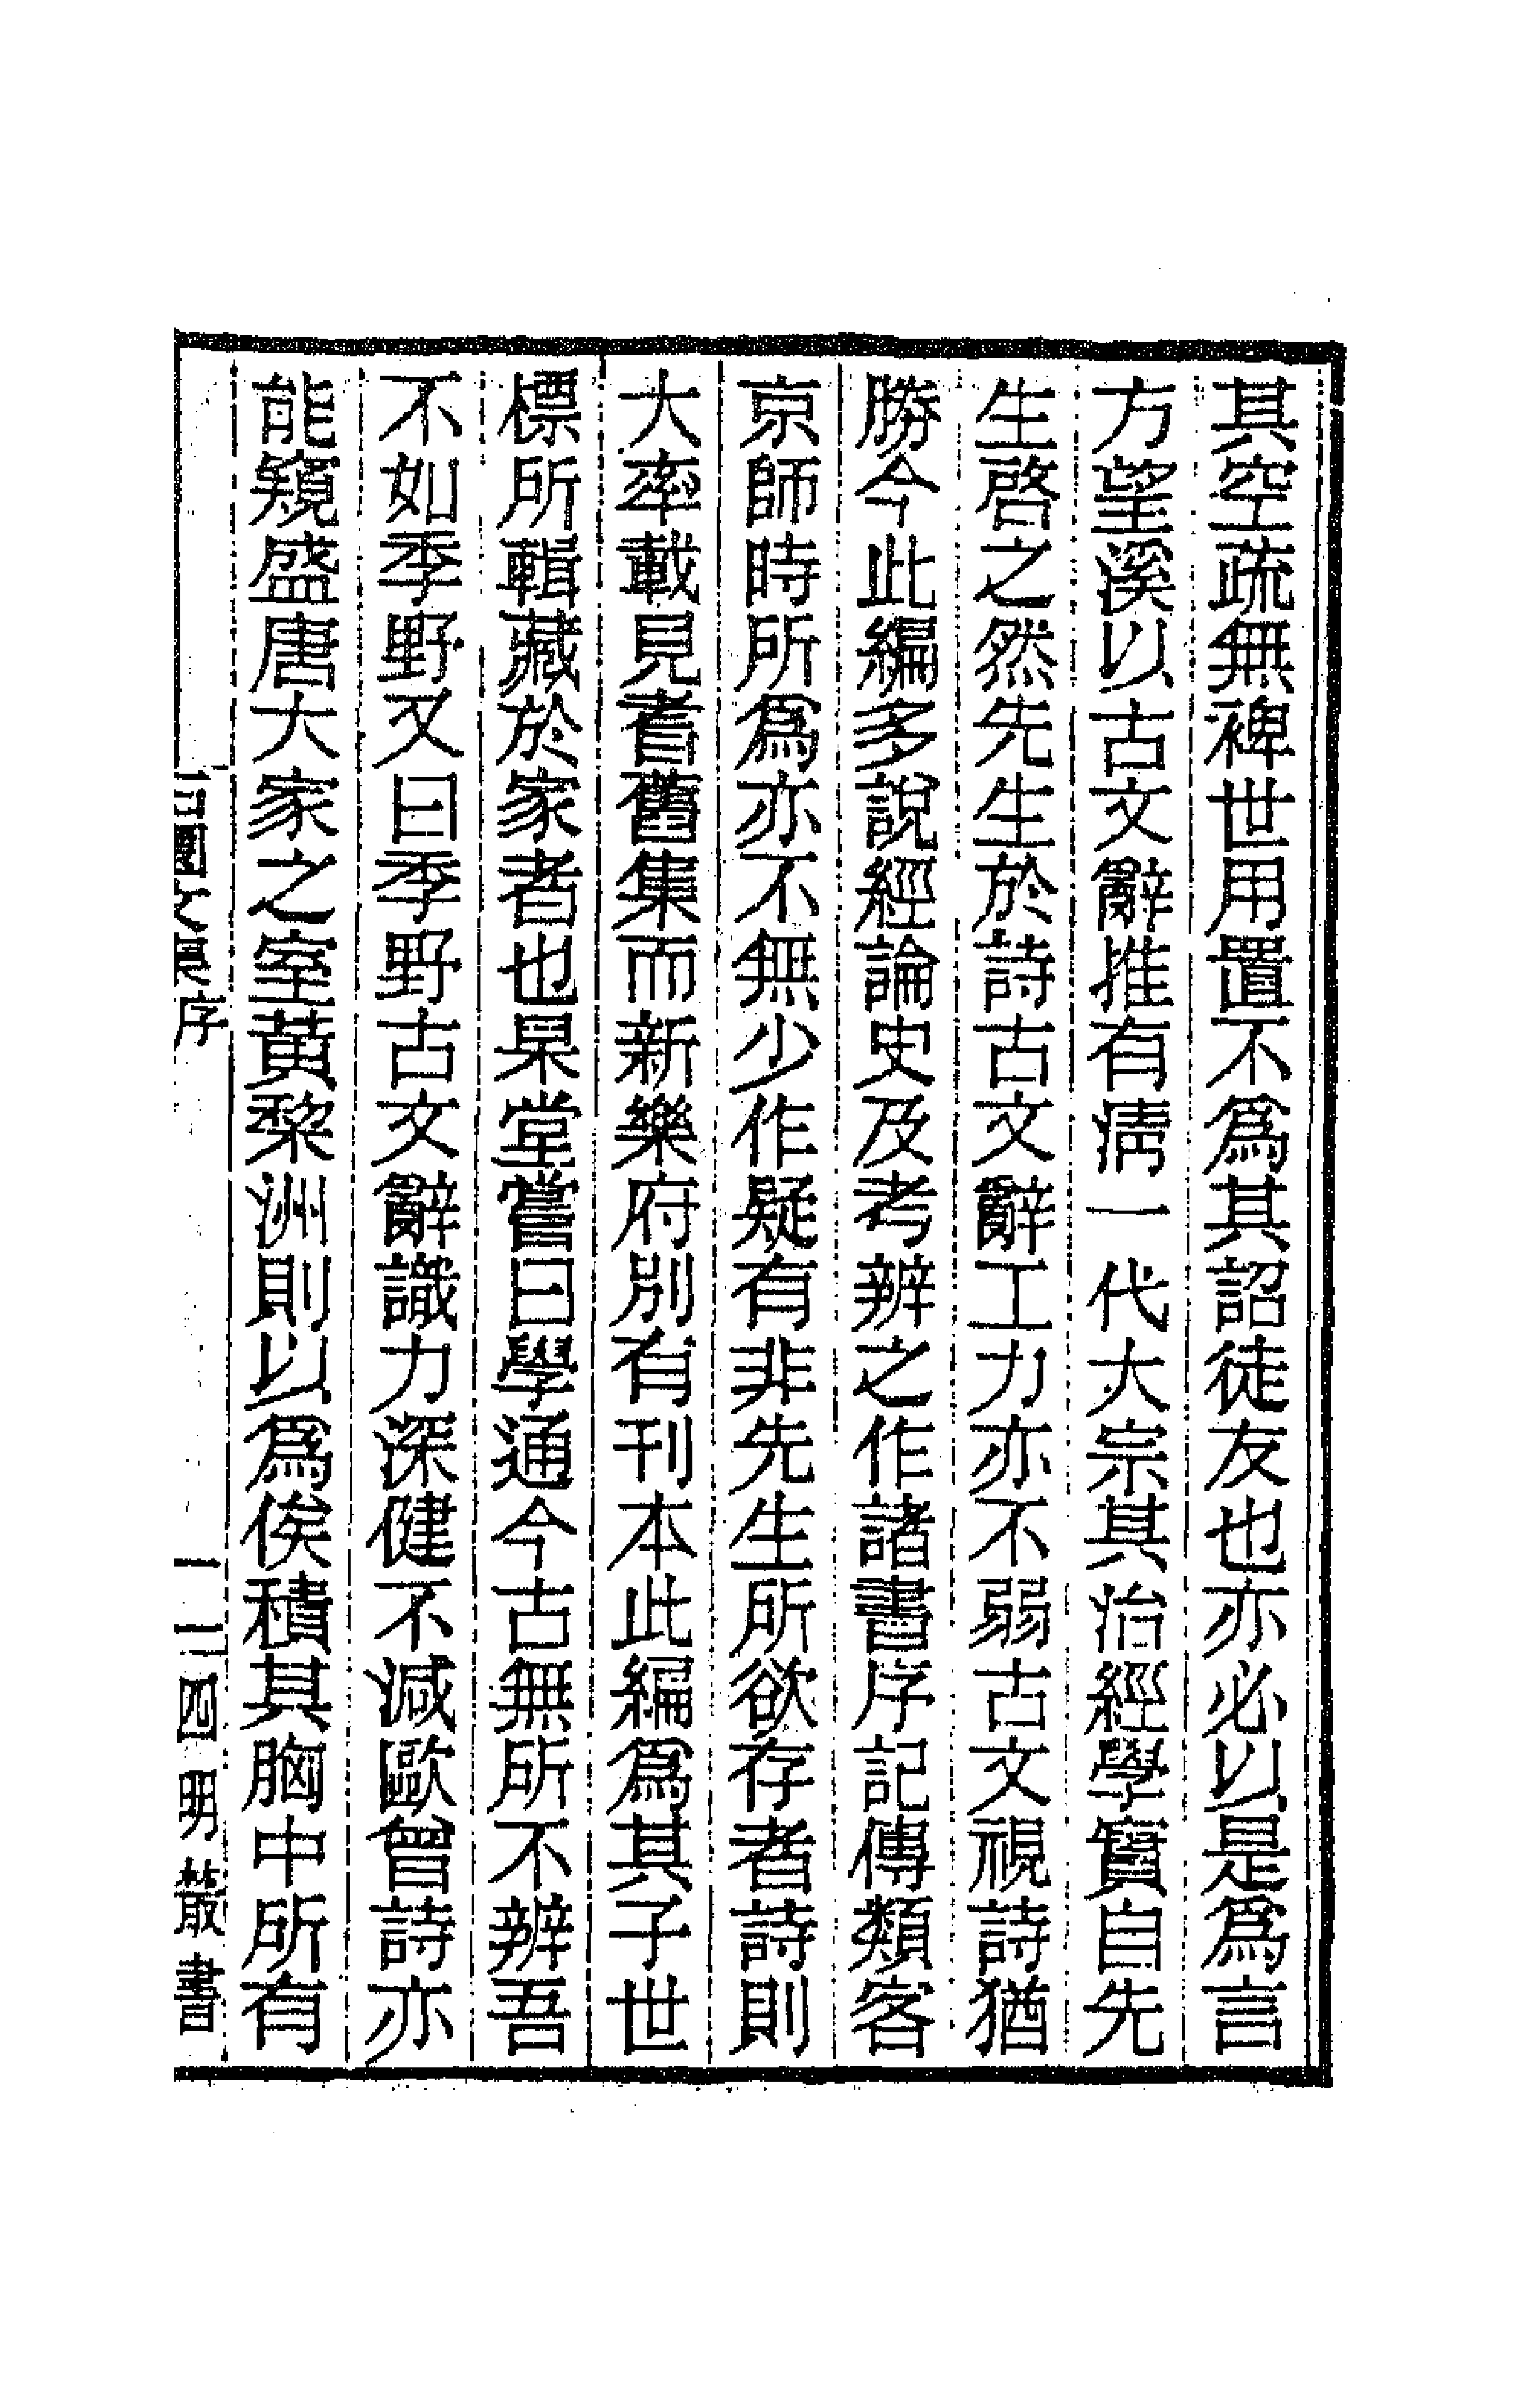 其空疏無裨世用置不爲其詔徒友也亦必以是爲言
方望溪以古文辭推有淸一代大宗其治經學實自先
生啓之然先生於詩古文辭工力亦不弱古文視詩猶
勝今此編多說經論史及考辨之作諸書序記傳類客
京師時所爲亦不無少作疑有非先生所欲存者詩則
大率載見耆舊集而新樂府別有刊本此編爲其子世
標所輯藏於家者也杲堂嘗曰學通今古無所不辨吾
不如季野又曰季野古文辭識力深健不減歐曾詩亦
能窺盛唐大家之室黃棃洲則以爲俟積其胸中所有
石園文集序
一
二
四明叢書